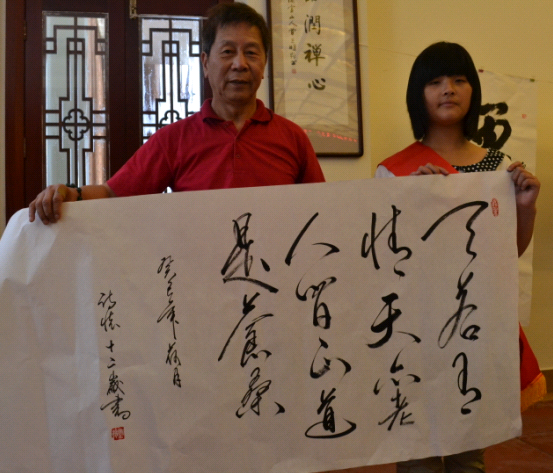 潤禪心
天若有
情天亦老
人間正道
是蒼桑
癸巳年
十二歲書